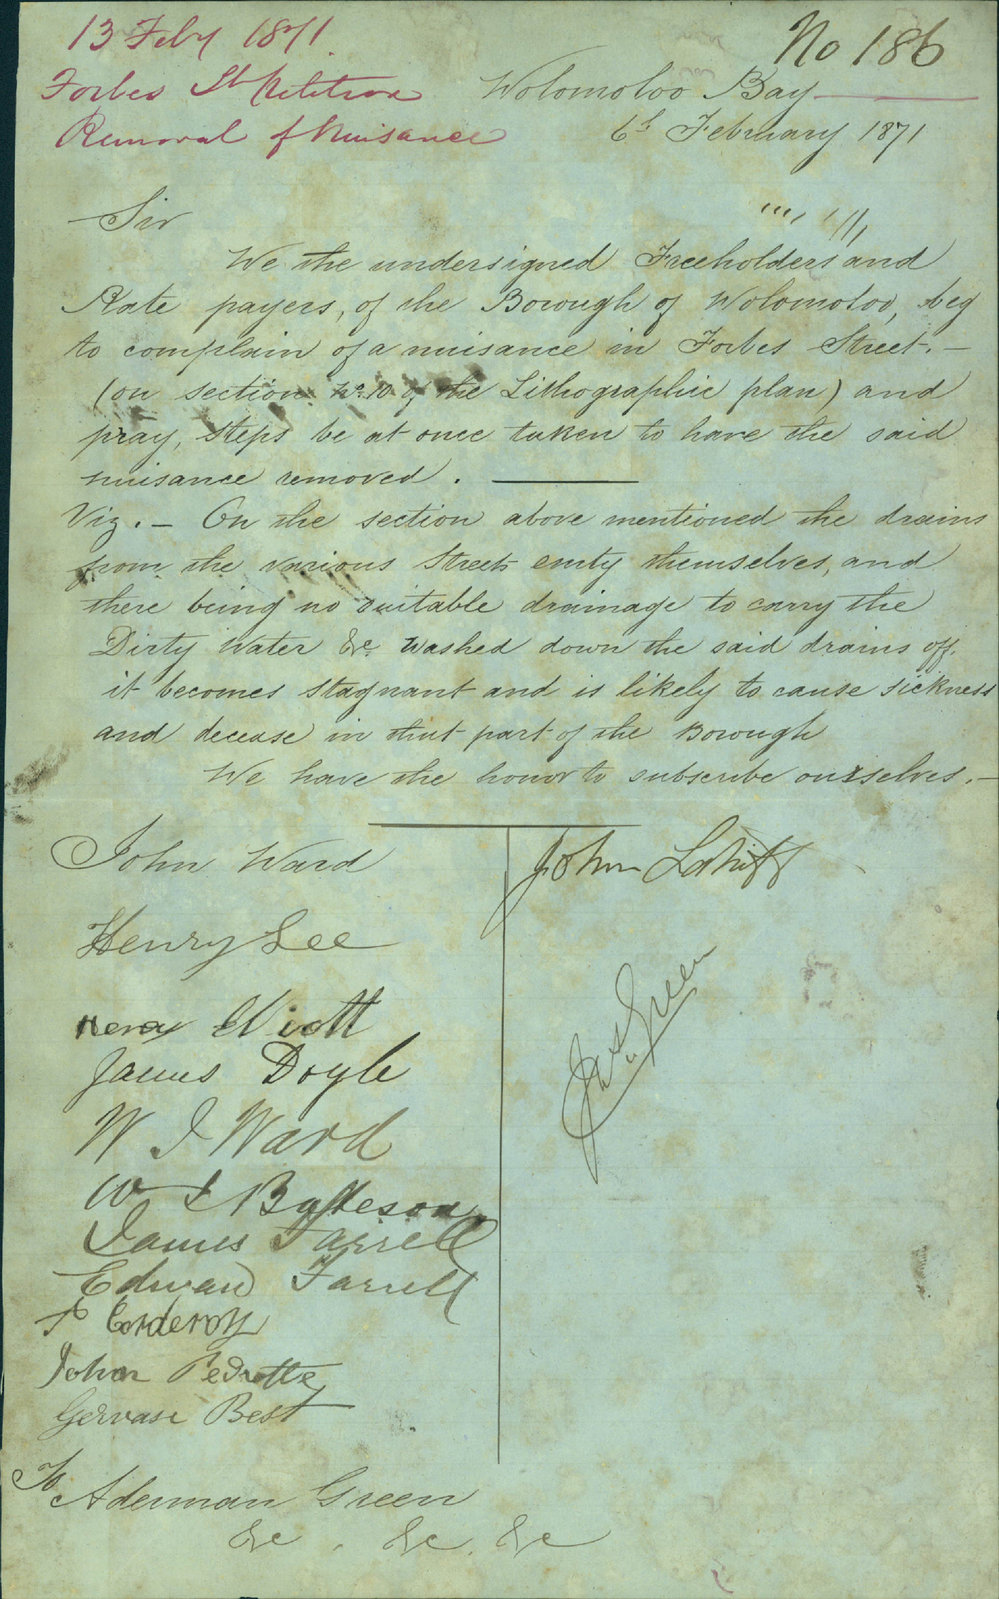 13 Feby 1871
No 186
Forbes St Petition
Removal of Nuisance
Wolomoloo Bay
6th February 1871
Sir
We the undersigned Freeholders and
Rate payers, of the Borough of Wolomoloo, beg
to complain of a nuisance in Forbes Street. —
(on section No. 10 of the Lithographic plan) and
pray, steps be at once taken to have the said
nuisance removed. ——
Viz. — On the section above mentioned the drains
from the various Streets emty themselves, and
there being no suitable drainage to carry the
Dirty Water &c. washed down the said drains off.
it becomes stagnant and is likely to cause sickness
and decease in that part of the Borough
We have the honor to subscribe ourselves. —
John Ward
John Lahiff
Henry Lee
Jas Green
James Doyle
W J Ward
W J Batteson
James Farrell
Edward Farrell
Corderoy
John Pedrotte
Gervase Best
To
Aderman Green
&c. &c. &c